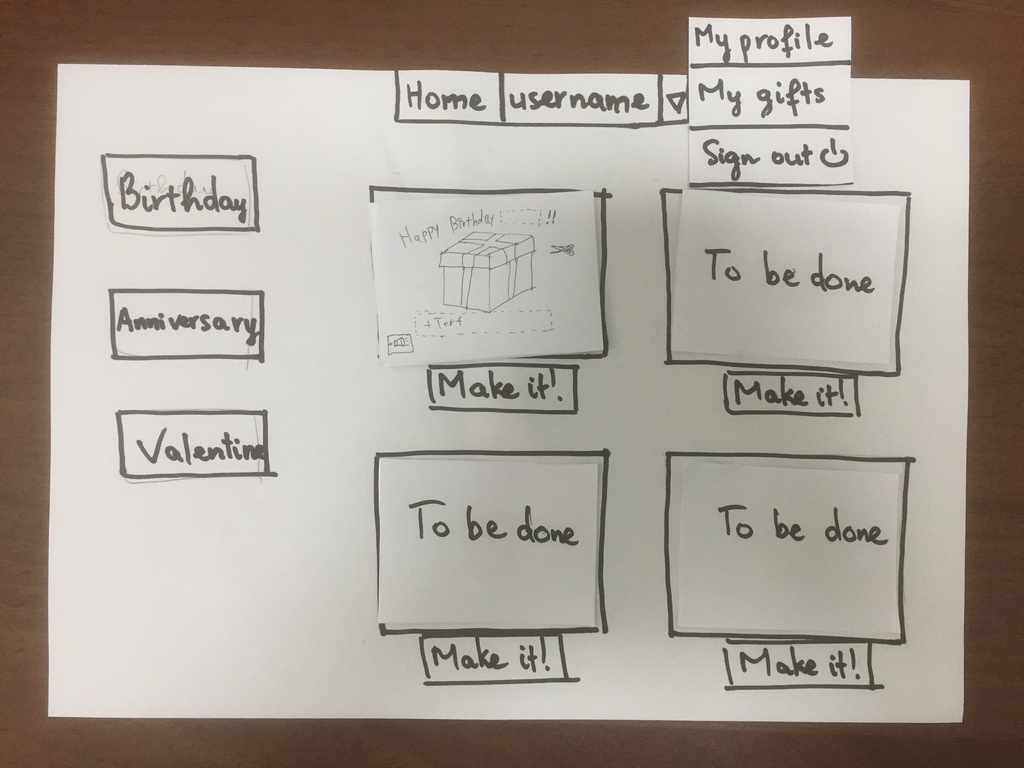 My profile
Home
username
My gifts
Sign out
Birthday
Anniversary
Valentine
Happy Birthday !!
+Text
Make it!
To be done
Make it!
To be done
Make it!
To be done
Make it!